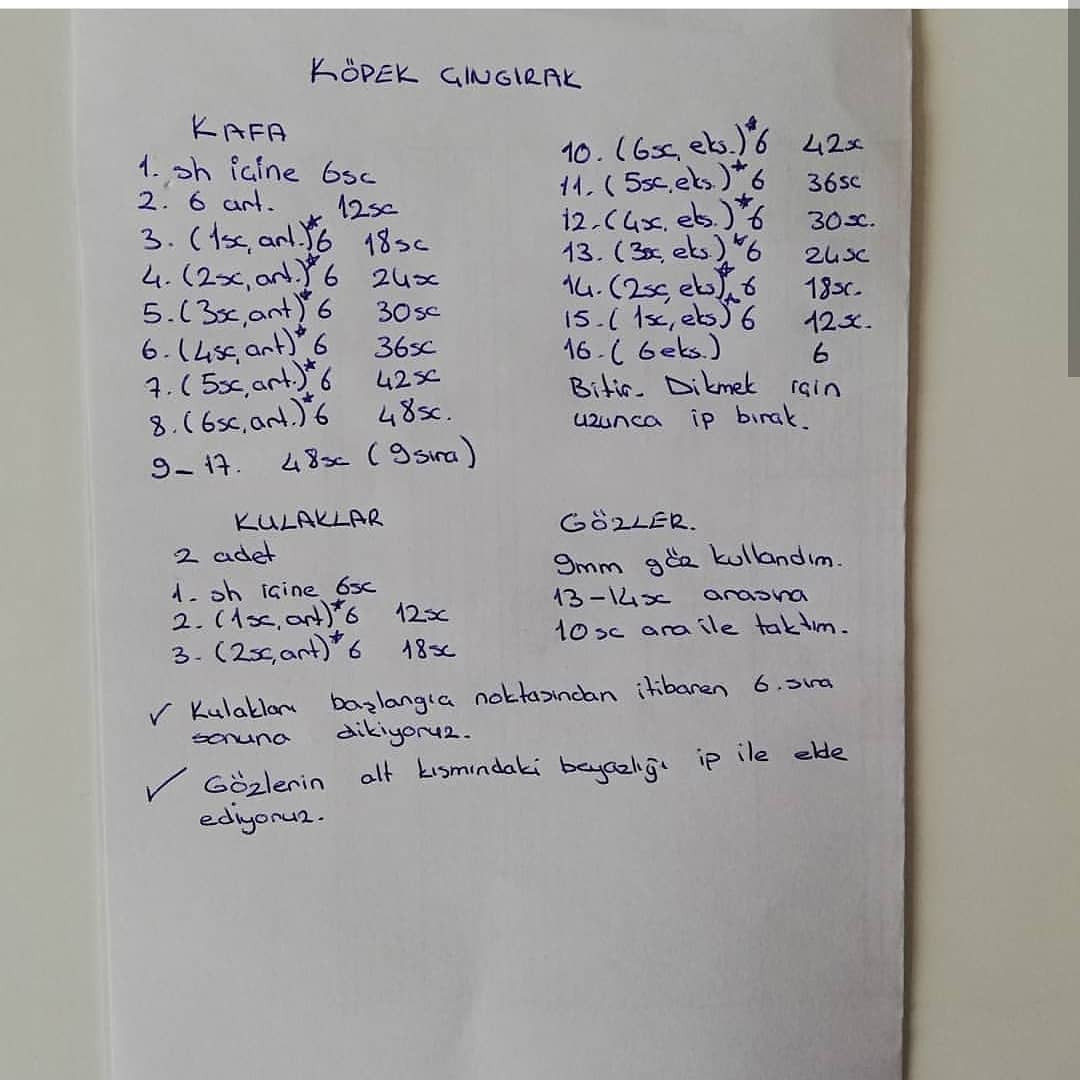 KÖPEK ÇINGIRAK
KAFA
1. sh içine 6sc
2. 6 art. 12sc
3. (1sc, art.)*6 18sc
4. (2sc, art.)*6 24sc
5. (3sc, art)*6 30sc
6. (4sc, art)*6 36sc
7. (5sc, art.)*6 42sc
8. (6sc, art.)*6 48sc.
9-17. 48sc (9sıra)
10. (6sc, eks.)*6 42sc
11. (5sc, eks.)*6 36sc
12. (4sc, eks.)*6 30sc.
13. (3sc, eks.)*6 24sc
14. (2sc, eks)*6 18sc.
15. (1sc, eks)*6 12sc.
16. (6eks.) 6
Bitir. Dikmek için
uzunca ip bırak.
KULAKLAR
2 adet
1. sh içine 6sc
2. (1sc, art)*6 12sc
3. (2sc, art)*6 18sc
GÖZLER.
9mm göz kullandım.
13-14sc arasına
10sc ara ile taktım.
✓ Kulakları başlangıç noktasından itibaren 6.sıra
sonuna dikiyoruz.
✓ Gözlerin alt kısmındaki beyazlığı ip ile elde
ediyoruz.